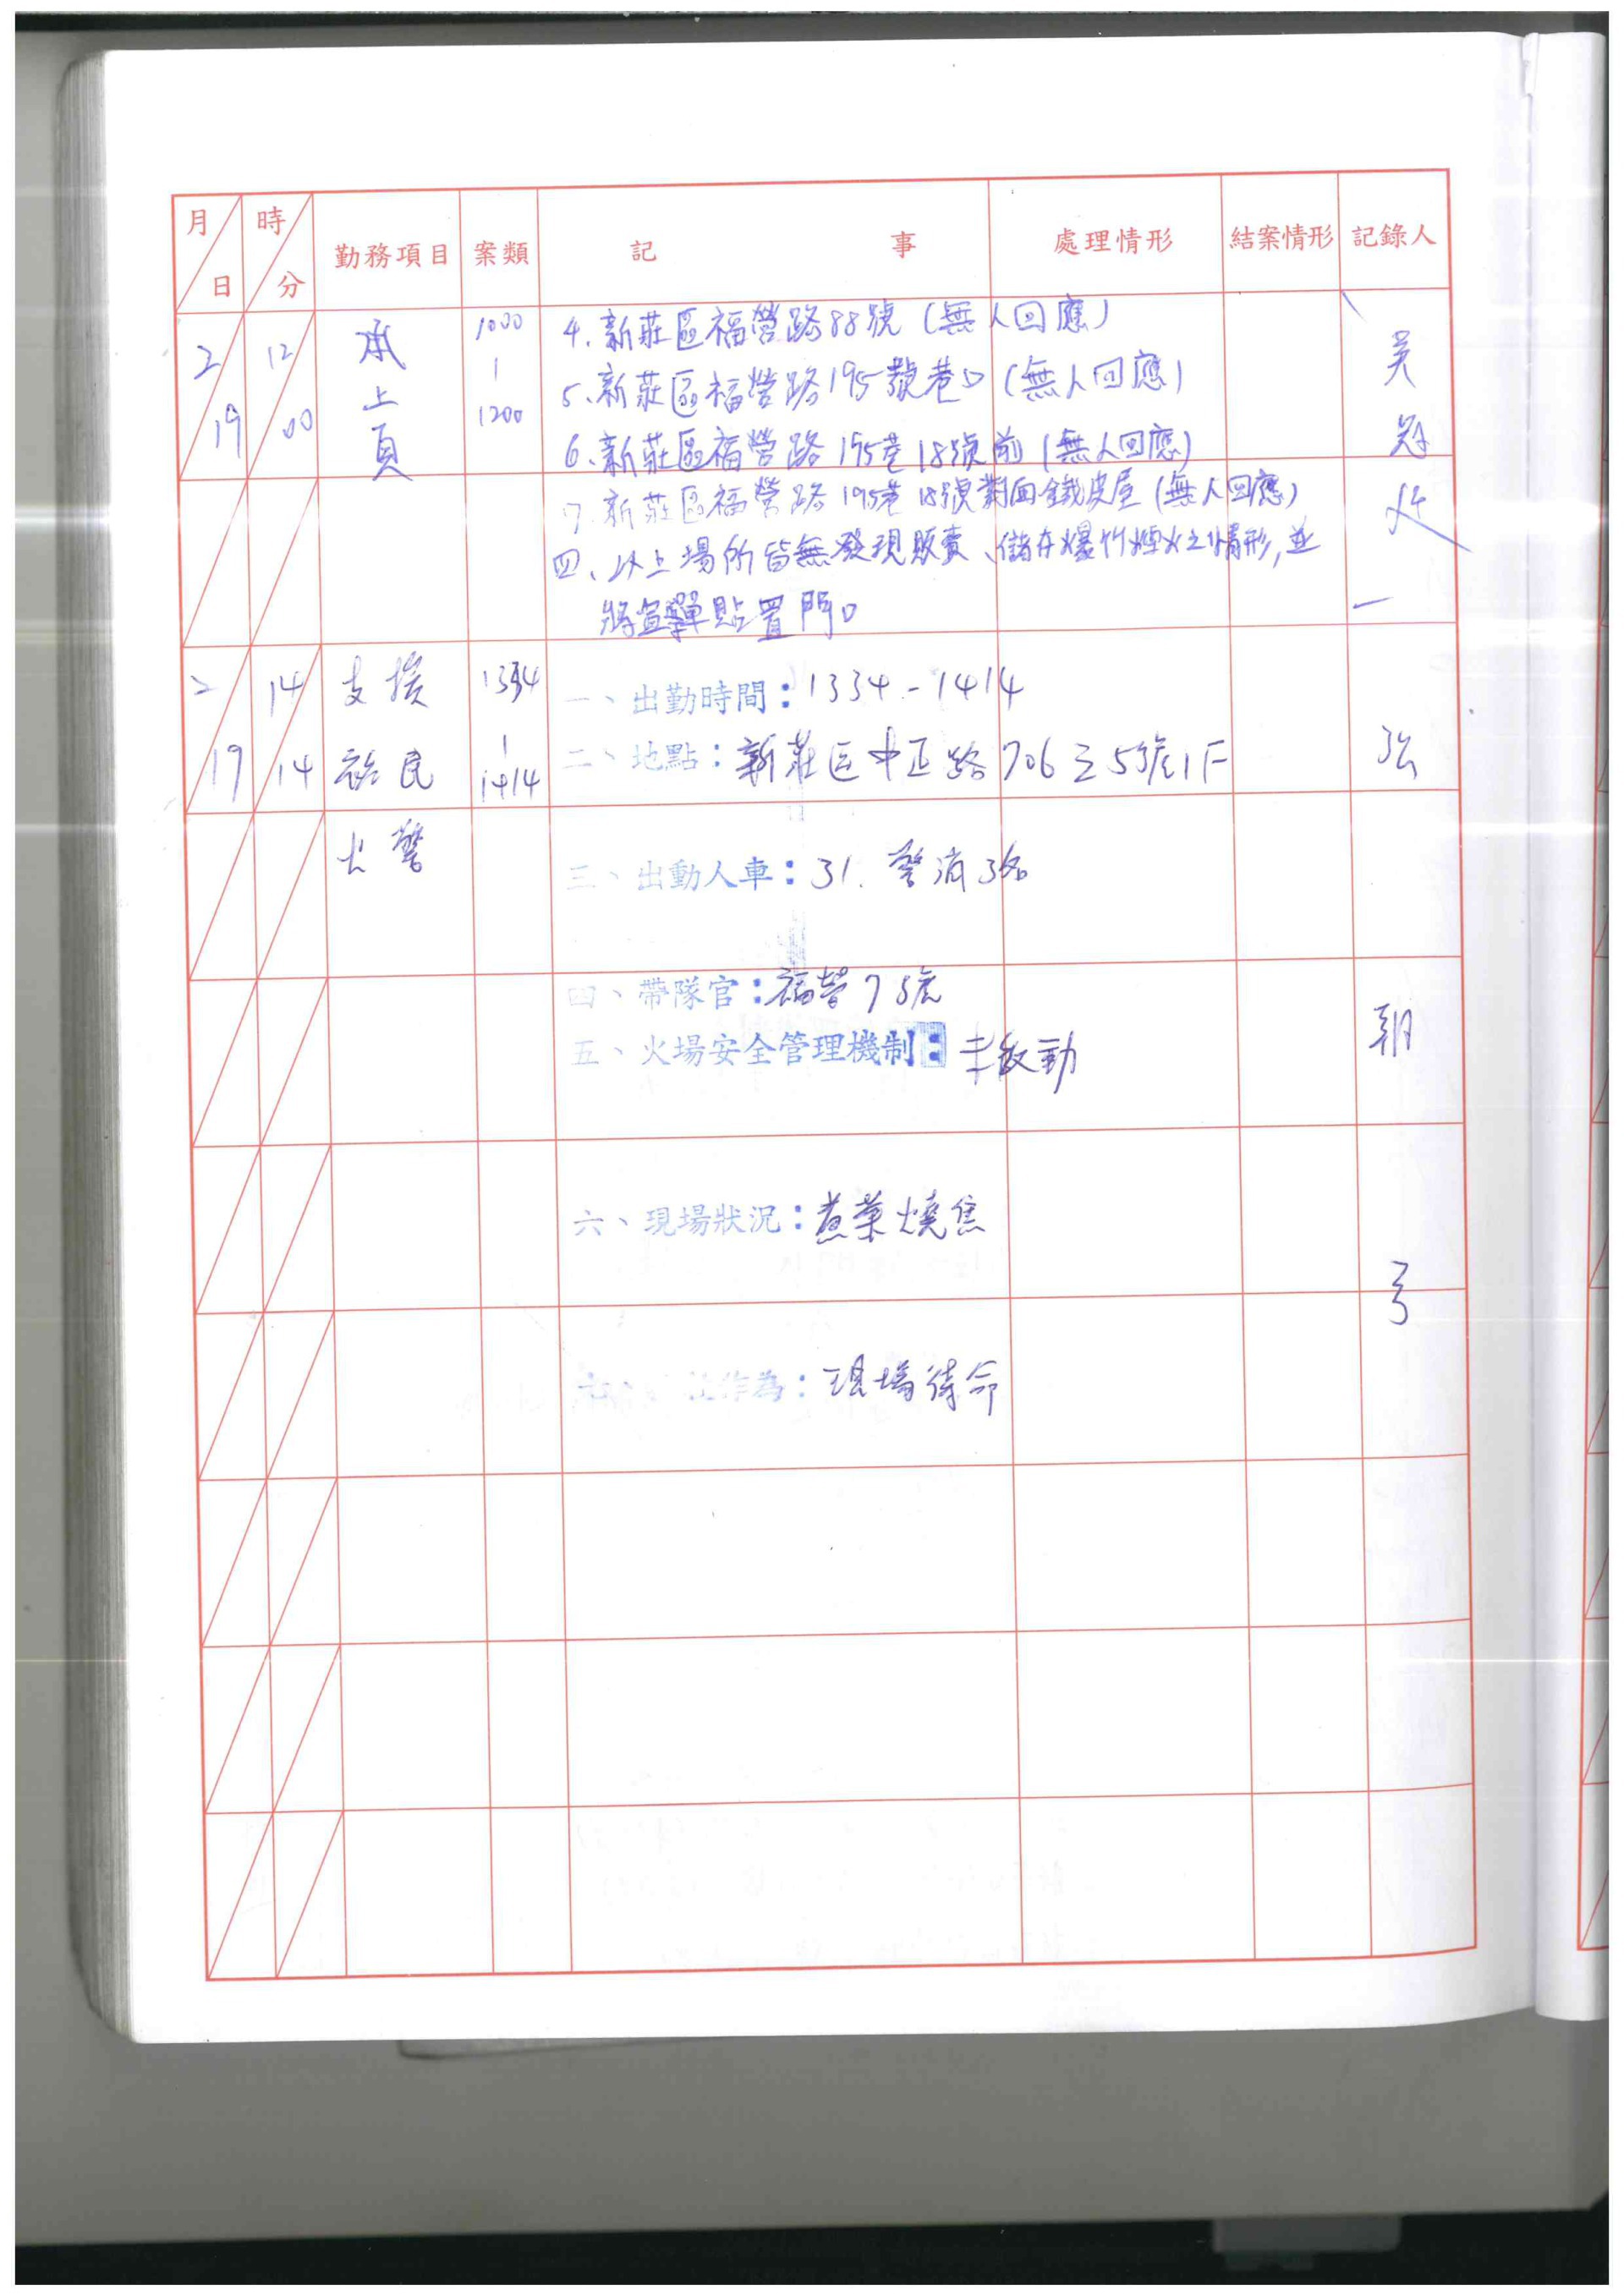 月 日 時 分 勤務項目 案類 記 事 處理情形 結案情形 記錄人
2 19 12 00 承上頁 1000 | 1200
4. 新莊區福營路88號 (無人回應)
5. 新莊區福營路195號巷口 (無人回應)
6. 新莊區福營路195巷18號前 (無人回應)
7. 新莊區福營路195巷18號對面鐵皮屋 (無人回應)
四、以上場所皆無發現販賣、儲存爆竹煙火之情形,並
將宣單貼置門口
吳冠
2 19 14 14 支援裕民火警 1334 | 1414
一、出勤時間:1334-1414
二、地點:新莊區中正路706之5號1F
三、出動人車:31. 警消3名
四、帶隊官:福營75號
五、火場安全管理機制:未啟動
六、現場狀況:煮菜燒焦
作為:現場待命
朝